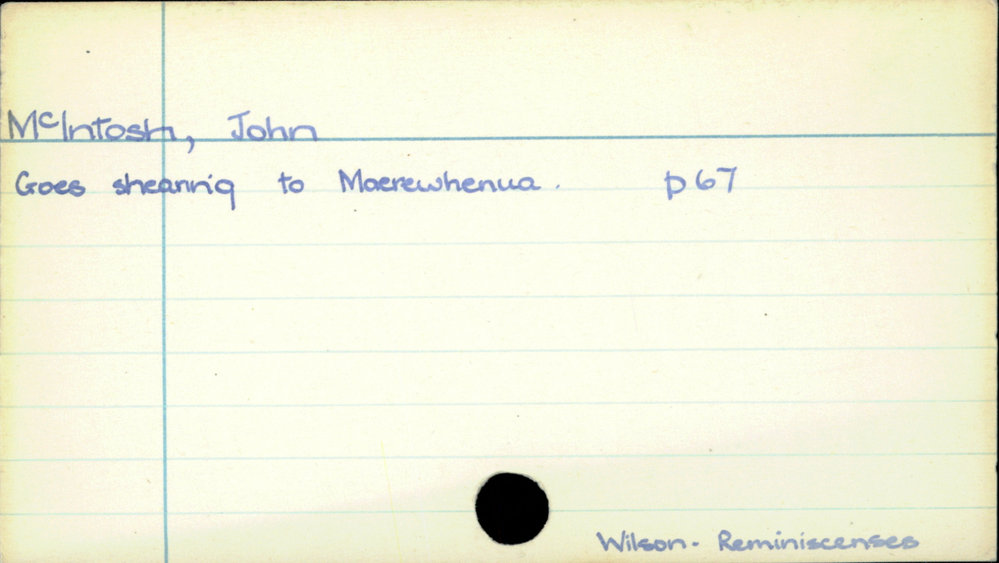 McIntosh, John
Goes shearing to Maerewhenua. p67
Wilson - Reminiscenses